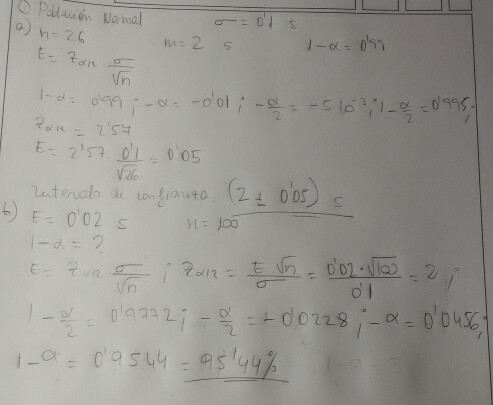 ① Población Normal σ = 0'1 s
a) n = 26 m = 2 s 1-α = 0'99
E = Zα/2 σ/√n
1-α = 0'99 ; -α = -0'01 ; -α/2 = -5·10⁻³ ; 1-α/2 = 0'995 ;
Zα/2 = 2'57
E = 2'57 · 0'1/√26 = 0'05
Intervalo de confianza: (2 ± 0'05) s
b) E = 0'02 s n = 100
1-α = ?
E = Zα/2 σ/√n ; Zα/2 = E·√n/σ = 0'02·√100/0'1 = 2 ;
1-α/2 = 0'9772 ; -α/2 = -0'0228 ; -α = 0'0456 ;
1-α = 0'9544 = 95'44%